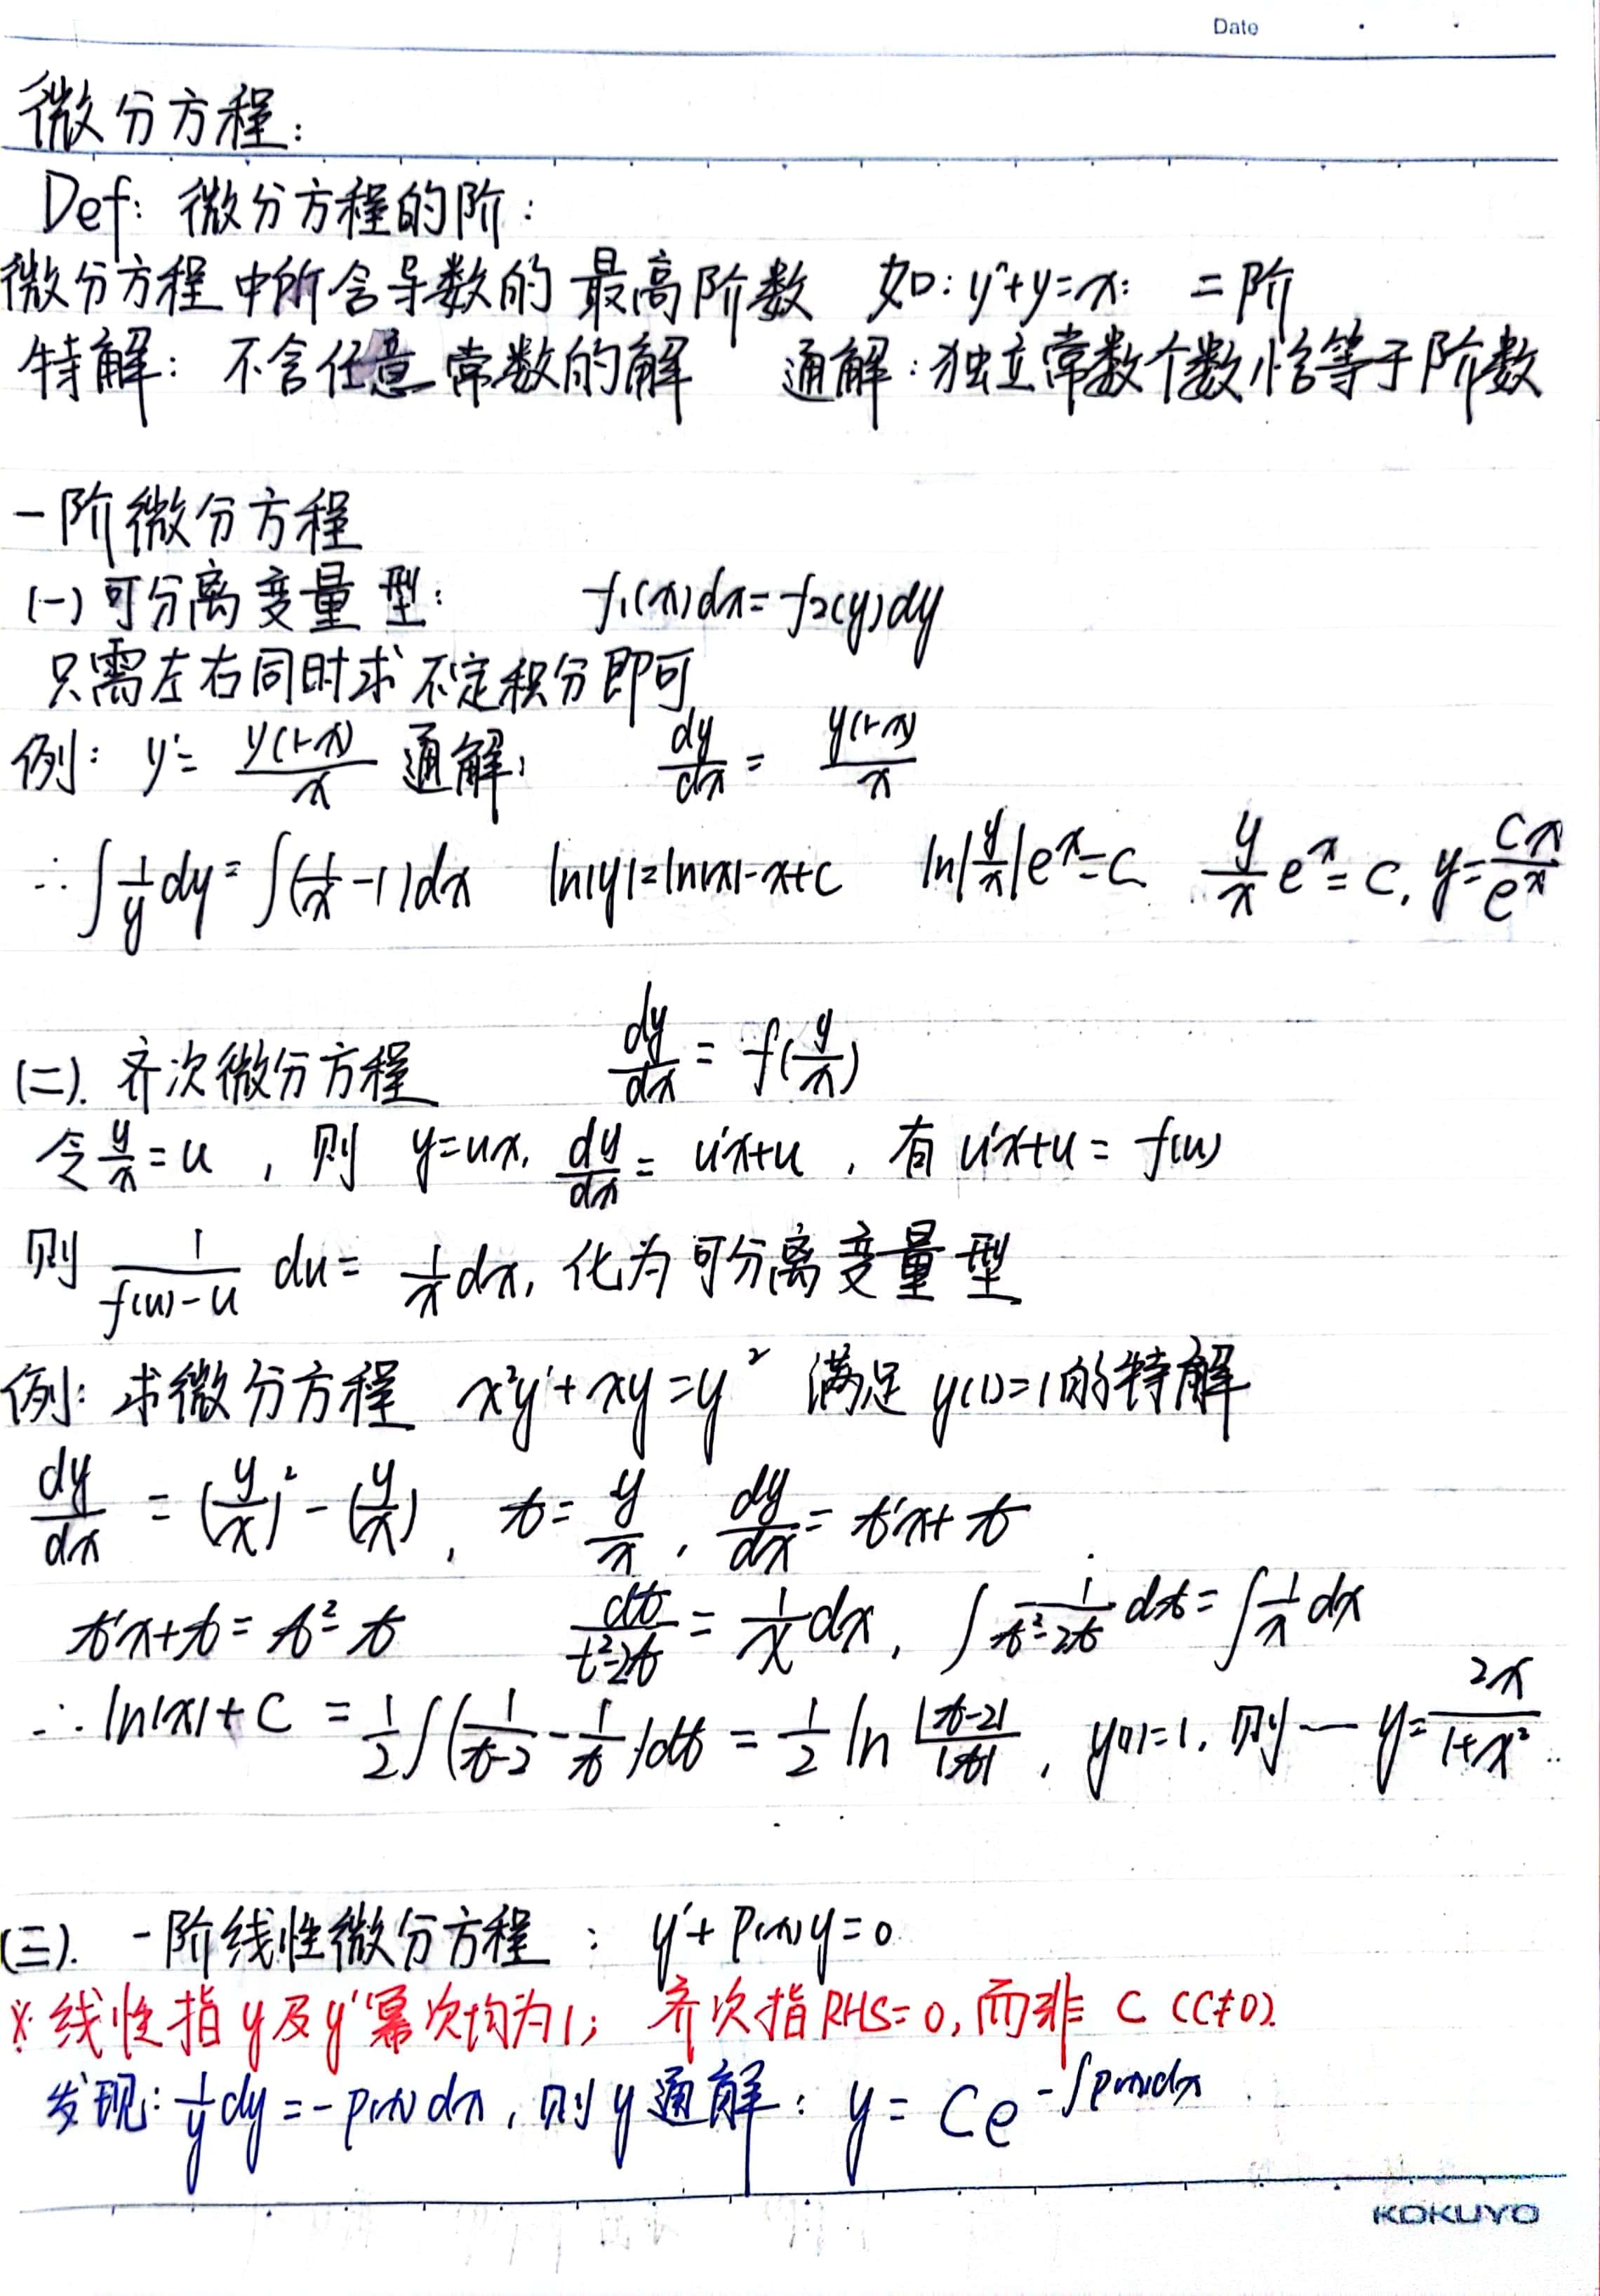 Date
微分方程:
Def: 微分方程的阶:
微分方程中所含导数的最高阶数 如: y''+y=x: 二阶
特解: 不含任意常数的解 通解: 独立常数个数恰等于阶数
一阶微分方程
(一) 可分离变量型: f₁(x)dx=f₂(y)dy
只需左右同时求不定积分即可
例: y'= y(1-x)/x 通解: dy/dx = y(1-x)/x
∴ ∫1/y dy = ∫(1/x -1)dx ln|y|=ln|x|-x+C ln|y/x|e^x=C y/x e^x = C, y=Cx/e^x
(二). 齐次微分方程 dy/dx = f(y/x)
令 y/x = u , 则 y=ux, dy/dx = u'x+u , 有 u'x+u = f(u)
则 1/(f(u)-u) du = 1/x dx, 化为可分离变量型
例: 求微分方程 x²y'+xy=y² 满足 y(1)=1的特解
dy/dx = (y/x)² - (y/x) , t= y/x , dy/dx = t'x+t
t'x+t = t²-t dt/(t²-2t) = 1/x dx, ∫ 1/(t²-2t) dt = ∫1/x dx
∴ ln|x|+C = 1/2 ∫(1/(t-2) - 1/t)dt = 1/2 ln |t-2|/|t| , y(1)=1, 则 — y= 2x/(1+x²)
(三). 一阶线性微分方程 : y'+P(x)y=0
※ 线性指 y 及 y' 幂次均为1; 齐次指 RHS=0, 而非 C (C≠0)
发现: 1/y dy = -P(x)dx , 则 y 通解: y = Ce^(-∫P(x)dx)
KOKUYO